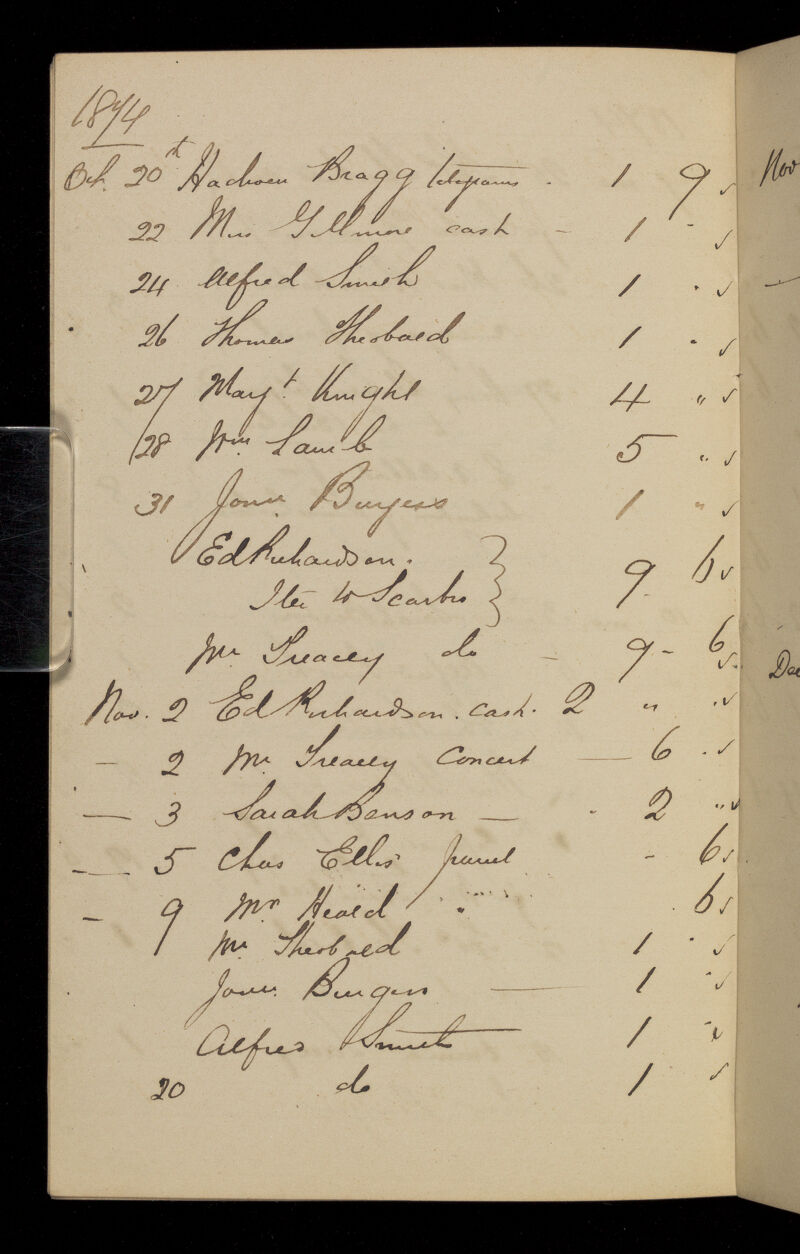 1874
Oct. 20th Hadwen Bragg telegrams . 1 9
22 Mrs Gillmore cash - 1 -
24 Alfred Smith 1 .
26 Thomas Theobald 1 .
27 Mary t. Knight 4 "
28 Wm Lamb 5 "
31 Jonn. Burgess 1 "
Ed Richardson.
to Scarbro 9 6
Mr Treacey do - 9 - 6
Nov. 2 Ed Richardson. cash. 2 " .
- 2 Mr Treacey Concert - 6 .
- 3 Sarah Benson - . 2 "
- 5 Chas Ellis parcel - 6
- 9 Mr Heald " 6
Mr Theobald 1 .
Jonn. Burgess - 1 .
Alfred Smith 1 -
20 do 1
Nov
Dec